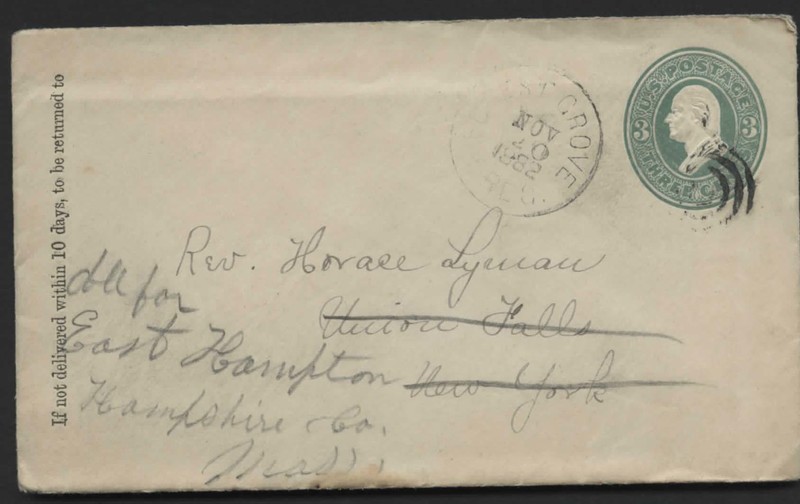 If not delivered within 10 days, to be returned to
GROVE
NOV
1882
U.S. POSTAGE
3 3
THREE
Rev. Horace Lyman
Union Falls
New York
for
East Hampton
Hampshire Co.
Mass.